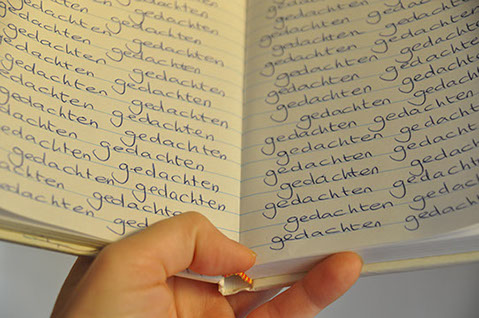 gedachten
gedachten
gedachten gedachten
gedachten gedachten
gedachten gedachten
gedachten gedachten
gedachten gedachten
gedachten gedachten
gedachten gedachten
gedachten gedachten
gedachten gedachten
gedachten gedachten
ged
gedachten
gedachten gedachten
gedachten gedachten
gedachten gedachten
gedachten gedachten
gedachten gedachten
gedachten gedachten
gedachten gedachten
gedachten gedachten
gedachten gedachten
gedachten gedachten
gedachten gedachten